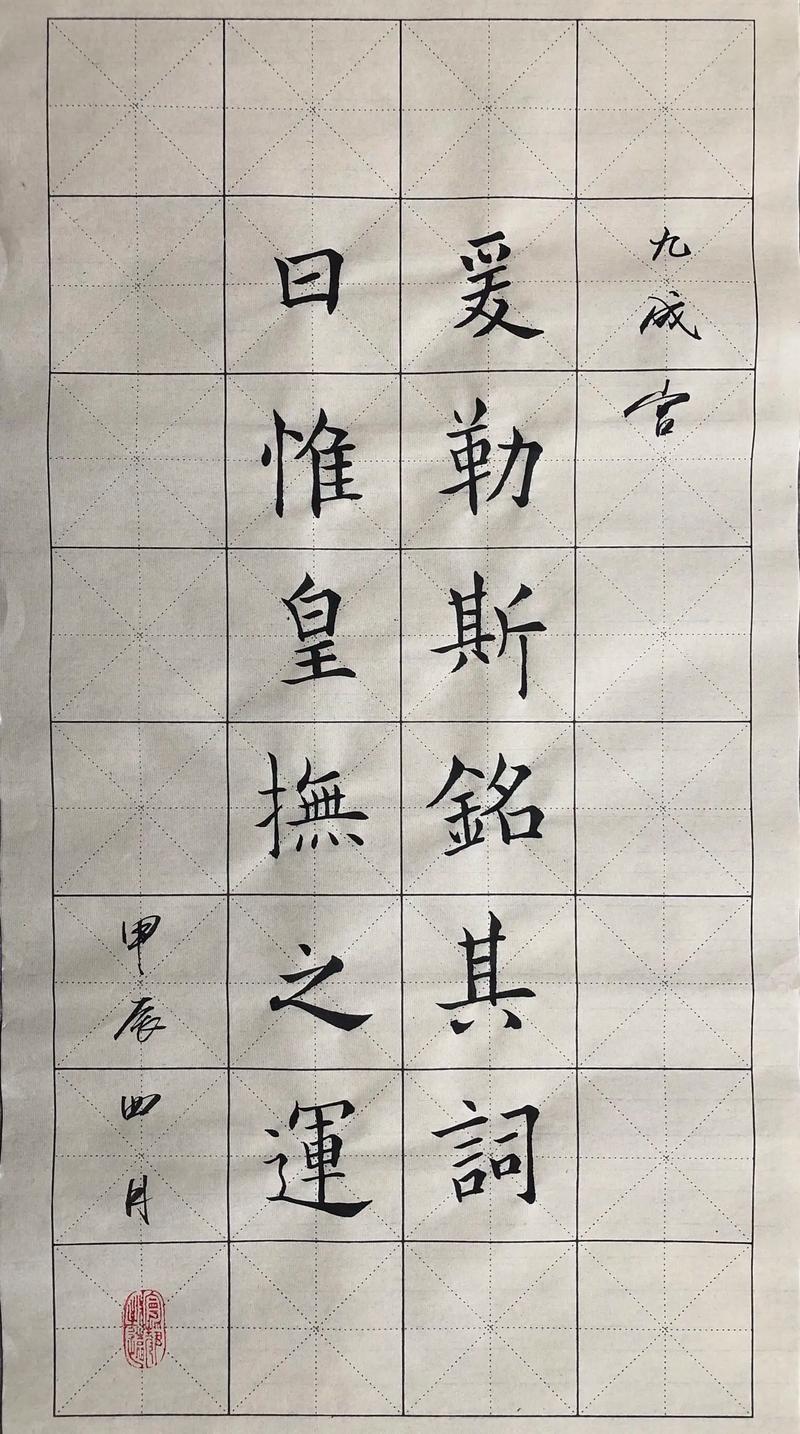 九成宮
爰勒斯銘其詞
曰惟皇撫之運
甲辰四月